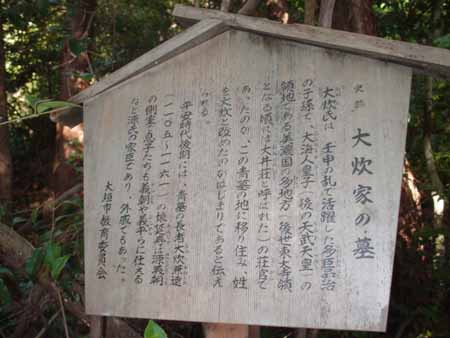 史跡
大炊家の墓
大炊氏は、壬申の乱で活躍した多臣品治
の子孫で、大海人皇子(後の天武天皇)の
領地である美濃国の多地方(後世、東大寺領
となる頃には大井荘と呼ばれた)の荘官で
あったのが、この青墓の地に移り住み、姓
を大炊と改めたのがはじまりであると伝え
られる。
平安時代後期には、青墓の長者大炊兼遠
(一一〇五〜一一六一)の娘延寿は源義朝
の側室、息子たちも義朝や義平らに仕える
など源氏の家臣であり、外戚でもあった。
大垣市教育委員会